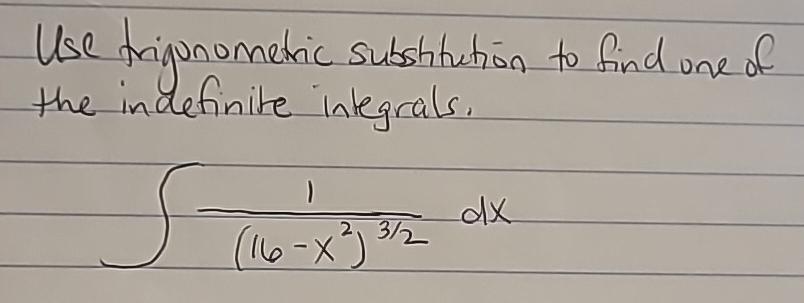 Use trigonometric substitution to find one of
the indefinite integrals.
∫ 1/(16-x²)^3/2 dx